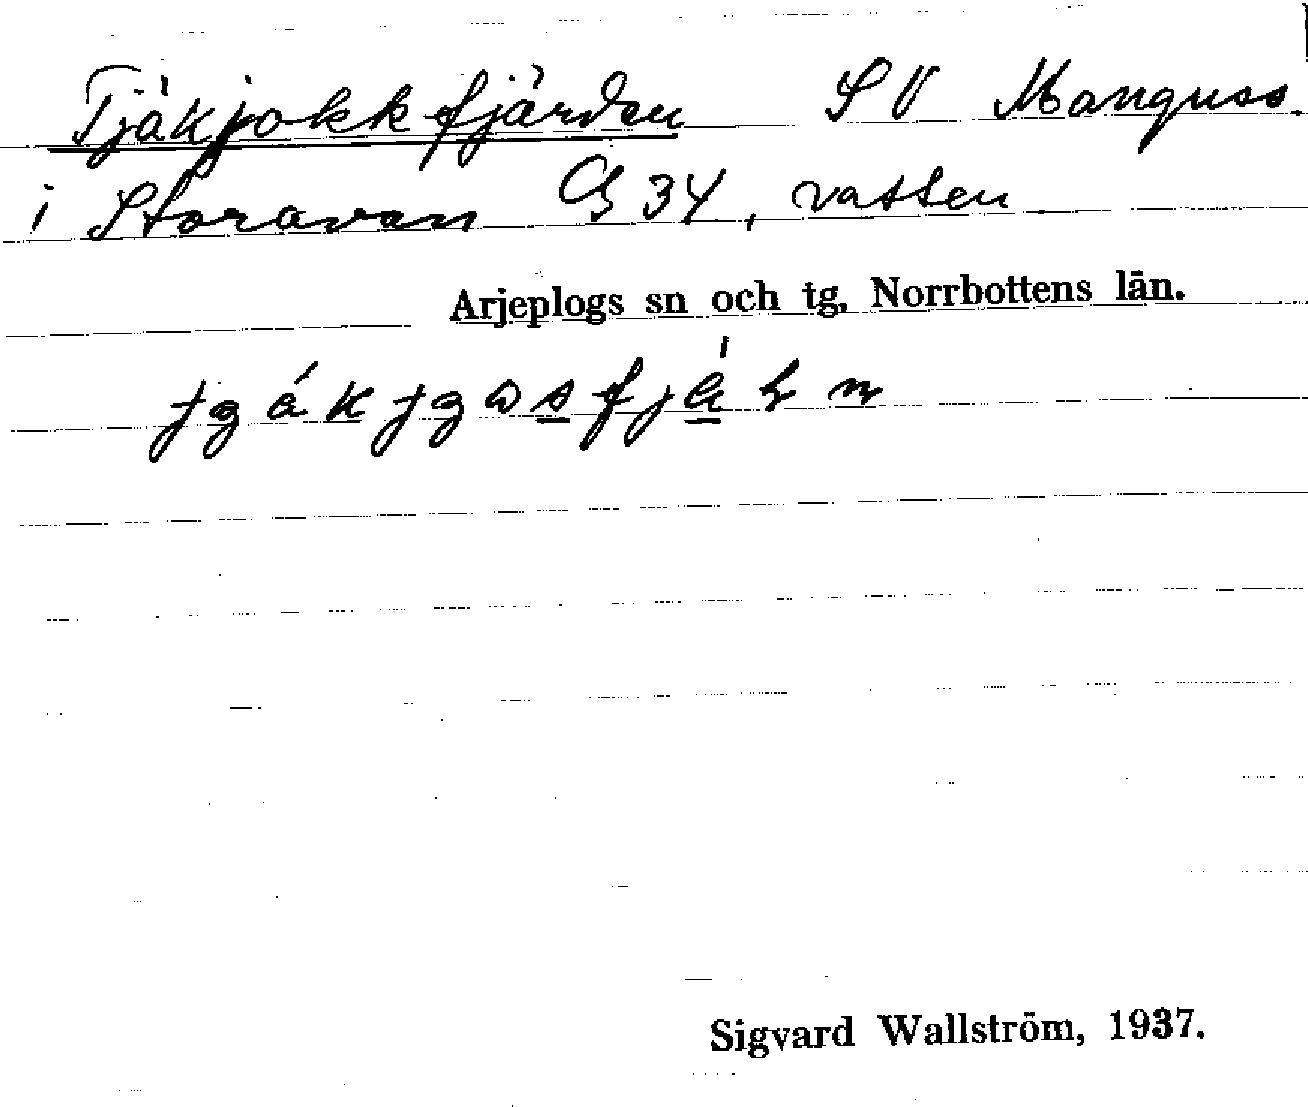 Tjäkjokkfjärden SV Manguss.
i Storavan G 34, vatten
Arjeplogs sn och tg, Norrbottens län.
Sigvard Wallström, 1937.